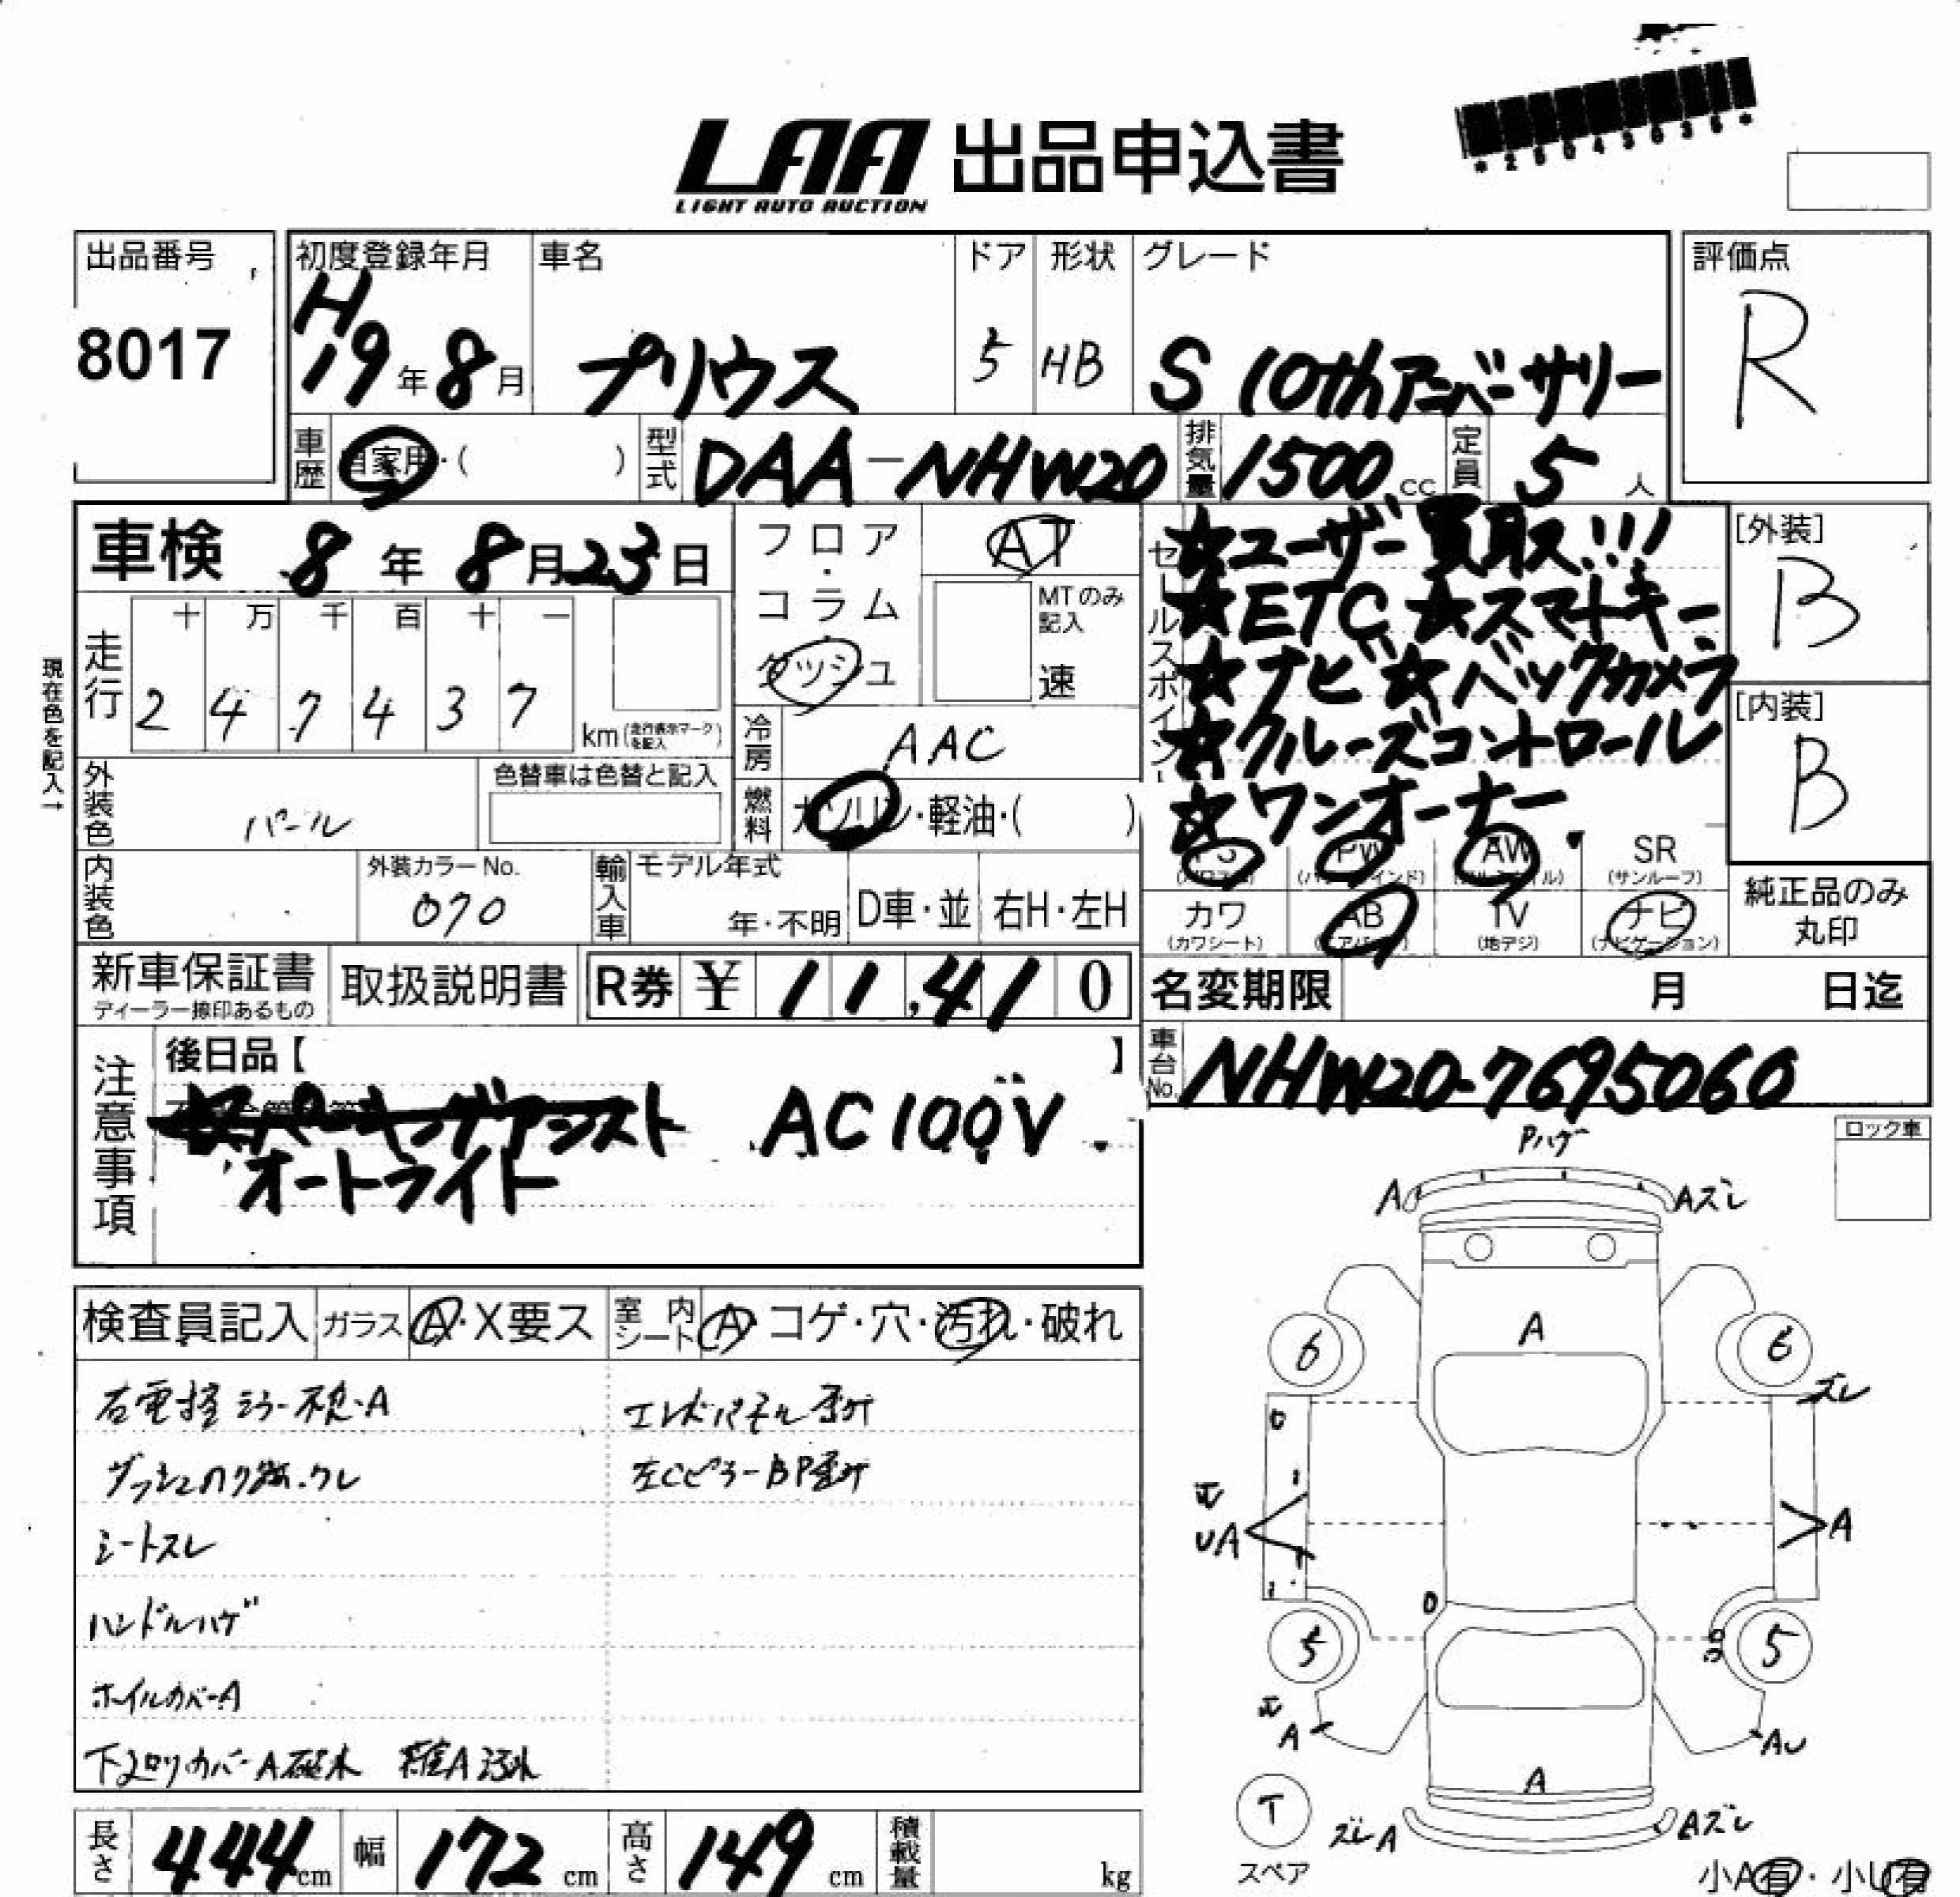 *25043035*
LAA 出品申込書
LIGHT AUTO AUCTION
出品番号
8017
初度登録年月
H19年8月
車名
プリウス
ドア
5
形状
HB
グレード
S 10thアニバーサリー
評価点
R
車歴
自家用・( )
型式
DAA-NHW20
排気量
1500cc
定員
5人
車検 8年 8月23日
フロア・コラム・ダッシュ
AT
MTのみ記入
速
セールスポイント
☆ユーザー買取!!!
☆ETC ☆スマートキー
☆ナビ ☆バックカメラ
☆クルーズコントロール
☆ワンオーナー
[外装]
B
[内装]
B
現在色を記入→
走行
十 万 千 百 十 一
2 4 7 4 3 7
km(走行表示マークを記入)
冷房
AAC
外装色
パール
色替車は色替と記入
燃料
ガソリン・軽油・( )
PS PW AW SR
(パワステ) (パワーウインド) (アルミホイル) (サンルーフ)
カワ AB TV ナビ
(カワシート) (エアバッグ) (地デジ) (ナビゲーション)
純正品のみ
丸印
内装色
外装カラーNo.
070
輸入車
モデル年式
年・不明
D車・並
右H・左H
新車保証書
ディーラー捺印あるもの
取扱説明書
R券 ¥ 11,410
名変期限 月 日迄
車台No.
NHW20-7695060
注意事項
後日品【 】
AC100V
オートライト
ロック車
検査員記入
ガラス
A・X要ス
室内シート
A・コゲ・穴・汚れ・破れ
右電格ミラー不良・A
エンドパネル歪み
ダッシュカク跡・ワレ
左Cピラー BP歪み
シートスレ
ハンドルハゲ
ホイルカバーA
下廻りカバーA破木
Pハゲ
A
Aズレ
A
6
6
ズレ
UA
A
5
5
A
AU
A
T
スペア
ズレA
Aズレ
小A有・小U有
長さ 444cm
幅 172cm
高さ 149cm
積載量 kg